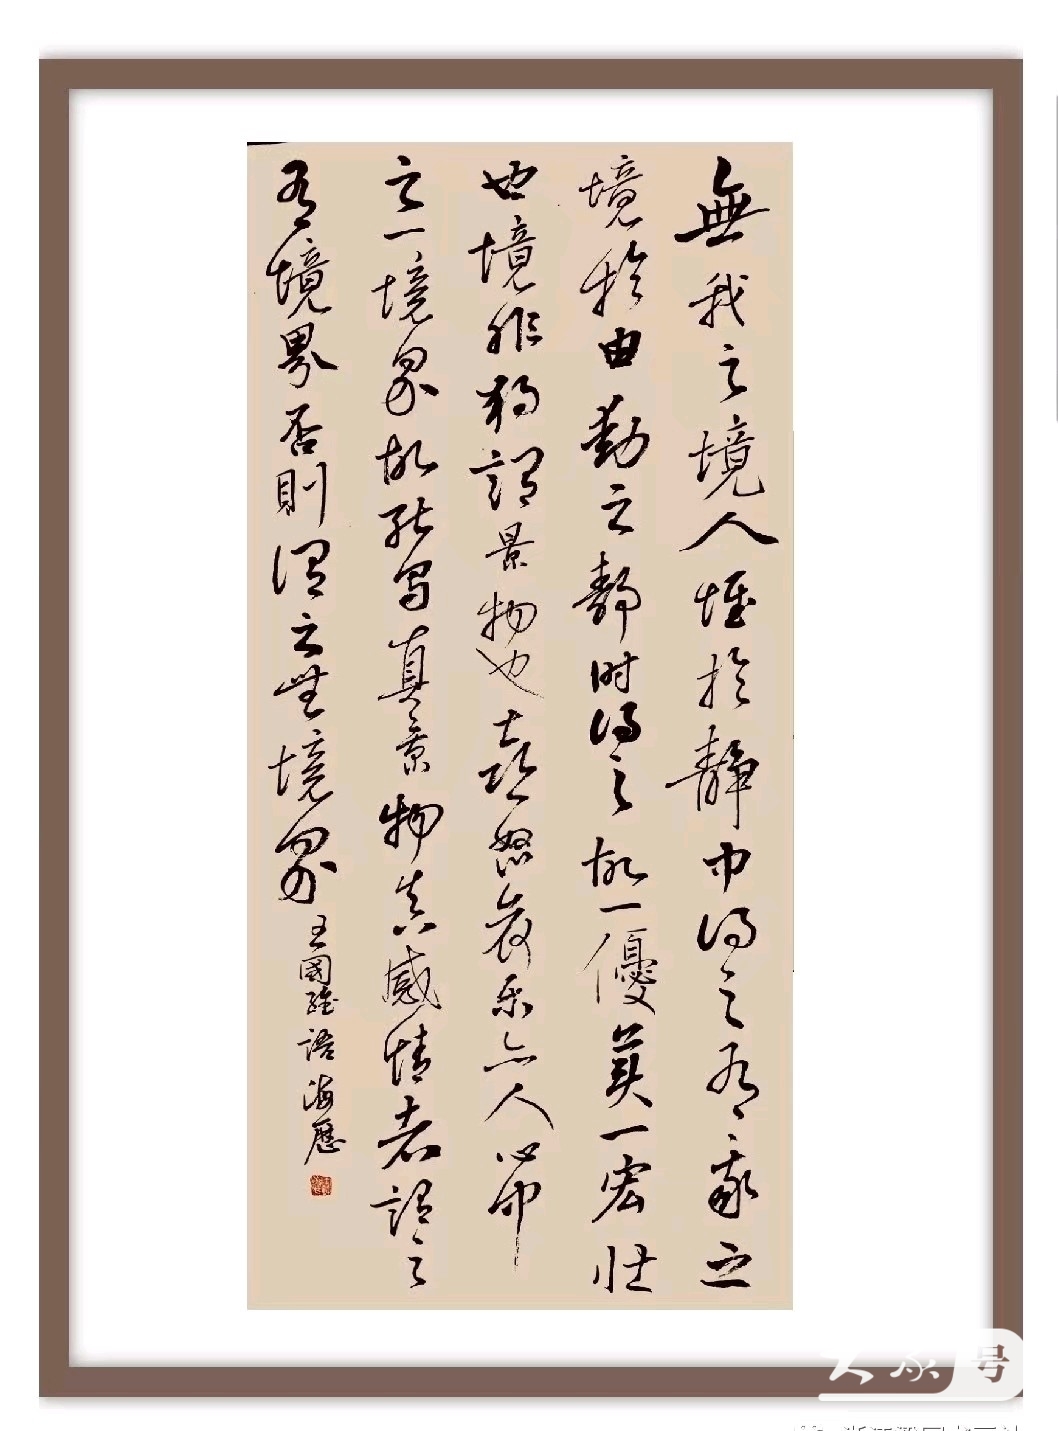 無我之境人惟於静中得之有我之
境於由動之静時得之故一優美一宏壯
也境非獨謂景物也喜怒哀樂亦人心中
之一境界故能写真景物真感情者謂之
有境界否則謂之無境界
王國維語 海歷
大众号